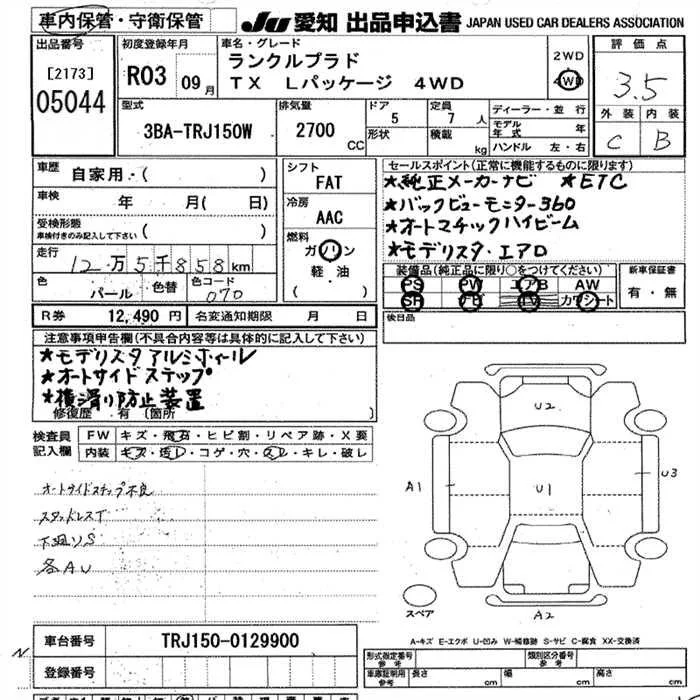 車内保管・守衛保管
JU 愛知 出品申込書 JAPAN USED CAR DEALERS ASSOCIATION
出品番号
[2173]
05044
初度登録年月
R03 09月
車名・グレード
ランクルプラド
TX Lパッケージ 4WD
2WD
4WD
評価点
3.5
外装 内装
C B
型式
3BA-TRJ150W
排気量
2700 CC
ドア
5
形状
定員
7 人
積載
kg
ディーラー・並行
モデル年式 年
ハンドル 左・右
車歴
自家用・( )
車検
年 月( 日)
受検形態
車検付きのみ記入して下さい ( )
走行
12万5千858km
色
パール
色替
色コード
070
シフト
FAT
冷房
AAC
燃料
ガソリン
軽・油
( )
セールスポイント(正常に機能するものに限ります)
★純正メーカーナビ ★ETC
★バックビューモニター360
★オートマチックハイビーム
★モデリスタ・エアロ
装備品(純正品に限り○をつけてください)
PS PW エアB AW
SR ナビ TV カワシート
新車保証書
有・無
R券 12,490 円 名変通知期限 月 日
後日品
注意事項申告欄(不具合内容等は具体的に記入して下さい)
★モデリスタアルミホイール
★オートサイドステップ
★横滑り防止装置
修復歴 有 [箇所 ]
検査員記入欄
FW キズ・飛石・ヒビ割・リペア跡・X要
内装 キズ・汚レ・コゲ・穴・スレ・キレ・破レ
オートサイドステップ不良
スタッドレスT
下廻りS
各AU
U2
A1
U1
U3
A2
スペア
A-キズ E-エクボ U-凹み W-補修跡 S-サビ C-腐食 XX-交換済
N
車台番号 TRJ150-0129900
登録番号
形式指定番号
参考
類別区分番号
参考
車庫証明用
参考
長さ cm 幅 cm 高さ cm